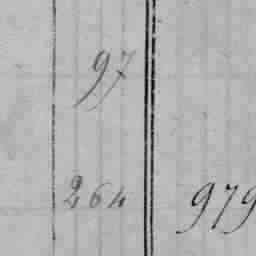 97
264 979